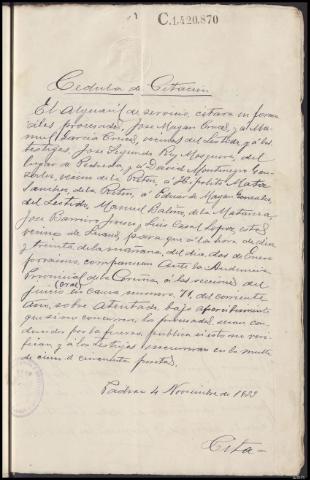 C.1.420.870
Cedula de Citacion
El Alguacil de servicio, citara en forma
a los procesados, Jose Magan Cruces, y a Ma-
nuel Garcia Cruces, vecinos del Lestido y a los
testigos Jose Segundo Rey Mosquera, del
lugar de y a David Montenegro Gon-
zalez, vecino de la Reten, a Hipolito Mata
Sanchez, de la Reten, a Eduardo Magan Gonzalez,
del Lestido, Manuel Baliña, de la
Jose Ramiro y Luis Casal Lopez, estos
vecinos de para que a la hora de diez
y treinta de la mañana, del dia dos de Enero
proximo comparezcan Ante la Audiencia
Provincial de la Coruña, a las sesiones del
juicio (oral) en causa numero 71, del corriente
Año, sobre Atentado, bajo apercibimiento
que si no concurren los procesados, seran con-
ducidos por la fuerza publica si esto no veri-
fican y a los testigos incurriran en la multa
de cinco a cincuenta pesetas,
Padron 4 Noviembre de 1933
Cita-